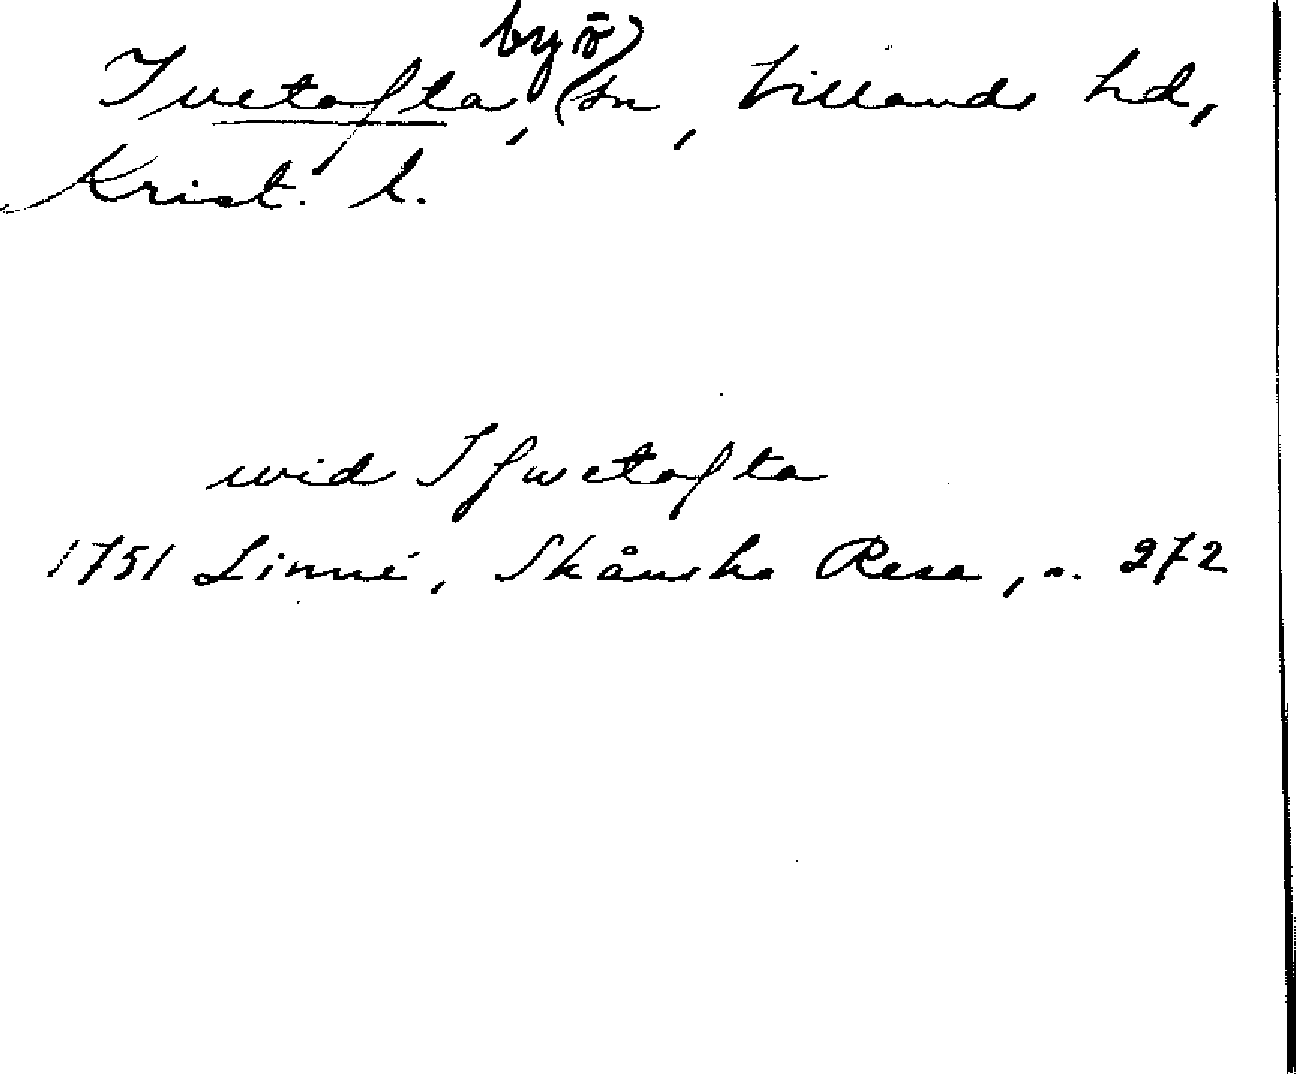 by ö)
Ivetofta, (sn, Villands hd,
Krist. l.
wid Ifwetofta
1751 Linné, Skånska Resa, s. 272